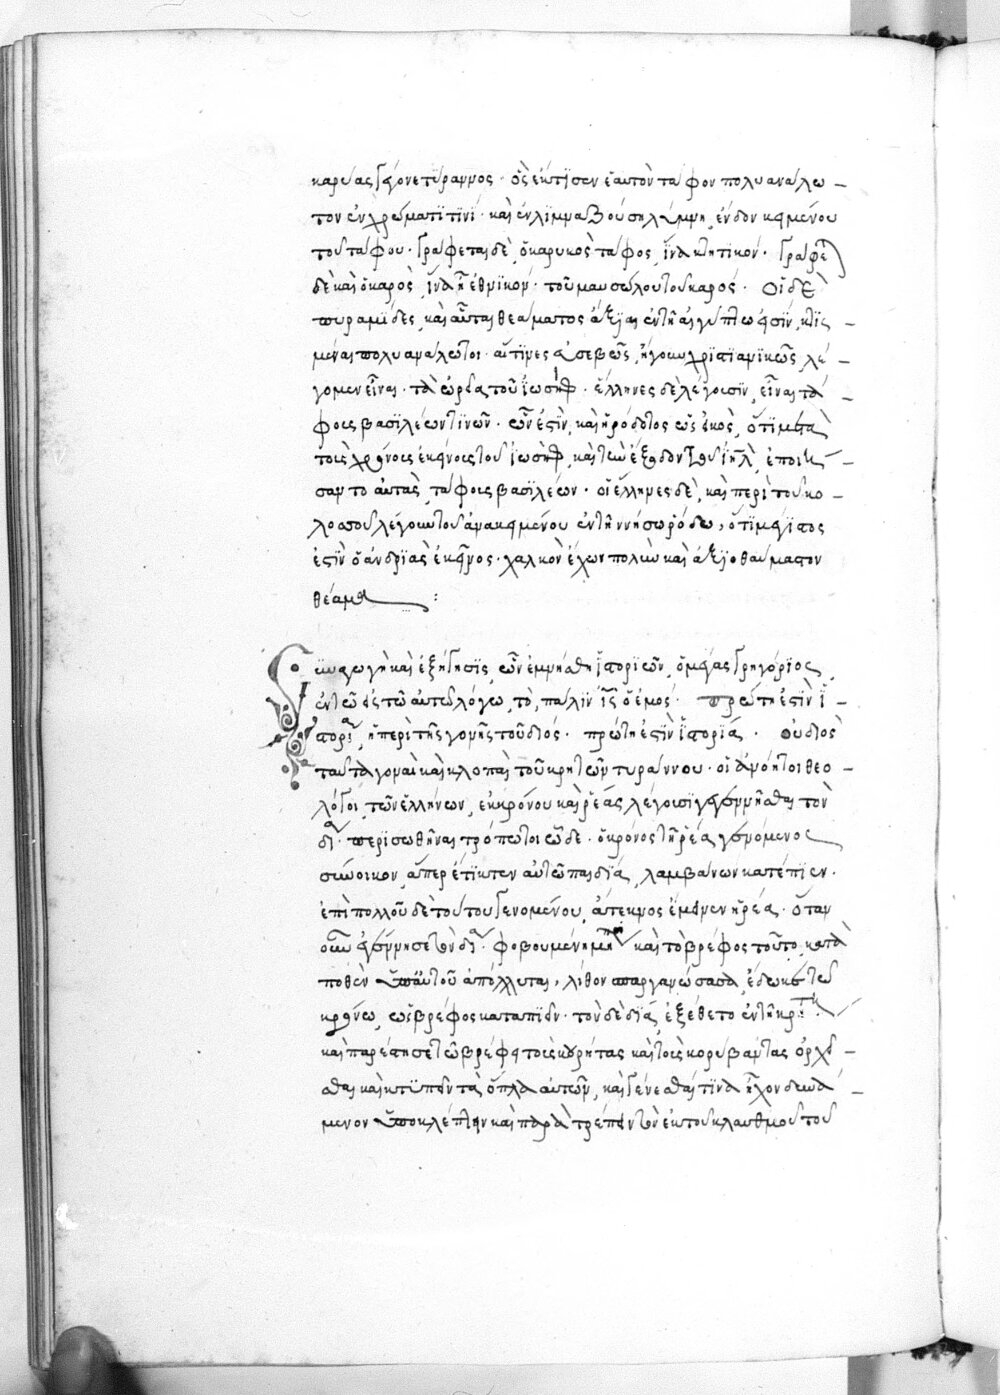 καρίας γέγονε τύραννος· ὃς ἔκτισεν ἑαυτὸν τάφον πολυανάλω
τον ἐν χρώματί τινί· καὶ ἐν λίμνα βούση λίμνη ἔνδον κειμένου
τοῦ τάφου· Γράφεται δὲ, ὁ καρικὸς τάφος, ἵνα κτητικόν· Γράφε
δὲ καὶ ὁ καρὸς, ἵνα ἦ ἐθνικόν· τοῦ μαυσώλου τοῦ καρός· Οἱ δὲ
πυραμίδες, καὶ αὗται θεάματος ἄξιαι ἐν τῆ αἰγύπτω εἰσὶν, κτισ
μέναι πολυανάλωτοι· αἵτινες εὐσεβῶς, ἤγουν χριστιανικῶς, λέ
γομεν εἶναι· τὰ ὡρεῖα τοῦ ἰωσὴφ· ἕλληνες δὲ λέγουσιν, εἶναι τά
φους βασιλέων τινῶν· ὧν ἐστὶν, καὶ ἡρόδοτος ὡς εἰκὸς, ὅτι μετὰ
τοὺς χρόνους ἐκείνους τοῦ ἰωσὴφ, καὶ τὴν ἔξοδον τοῦ ἰηλ, ἐποιή
σαντο αὐτὰς, τάφους βασιλέων· οἱ ἕλληνες δὲ, καὶ περὶ τοῦ κο
λοσσοῦ λέγουν τοῦ ἀνακειμένου ἐν τῆ νήσω ῥόδω, ὅτι μέγιστος
ἐστὶν ὁ ἀνδριὰς ἐκεῖνος· χαλκὸν ἔχων πολὺν καὶ ἀξιοθαύμαστον
θέαμα :
Συναγωγὴ καὶ ἐξήγησις, ὧν ἐμνήσθη ἱστοριῶν, ὁ μέγας Γρηγόριος,
ἐν τῶ εἰς τῶ αὐτῶ λόγω, τὸ, πάλιν ις ὁ ἐμός· πρώτη ἐστὶν ἱ
στορία, ἡ περὶ τῆς γονῆς τοῦ διός· πρώτη ἐστὶν ἱστορία· Οὐ διὸς
ταῦτα γοναὶ καὶ κλοπαὶ τοῦ κρητῶν τυράννου· οἱ ἀνόητοι θεο
λόγοι, τῶν ἑλλήνων, ἐκ κρόνου καὶ ῥέας λέγουσι γεγεννῆσθαι τὸν
δία· περισωθῆναι τρόπω τοιῶδε· ὁ κρόνος τῆ ῥέα γενόμενος
σύνοικον, ἅπερ ἔτικτεν αὐτῶ παιδία, λαμβάνων κατέπιεν·
ἐπὶ πολλοῦ δὲ τούτου γενομένου, ἄτεκνος ἔμεινεν ἡ ῥέα· ὅταν
οὖν ἐγέννησε τὸν δία· φοβουμένη μὴ καὶ τὸ βρέφος τοῦτο, κατα
ποθὲν ὑπ' αὐτοῦ ἀπόλλυται, λίθον σπαργανώσασα, ἔδωκε τῶ
κρόνω, ὡς βρέφος καταπιεῖν· τὸν δὲ δία, ἐξέθετο ἐν τῆ κρήτη·
καὶ παρέστησε τῶ βρέφει τοὺς κουρήτας καὶ τοὺς κορύβαντας ὀρχεῖ
σθαι καὶ κτυπεῖν τὰ ὅπλα αὐτῶν, καὶ γενέσθαι τινὰ ἦχον δυνά
μενον ὑποκλέπτειν καὶ παρατρέπειν τὸν ἐκ τοῦ κλαυθμοῦ τοῦ